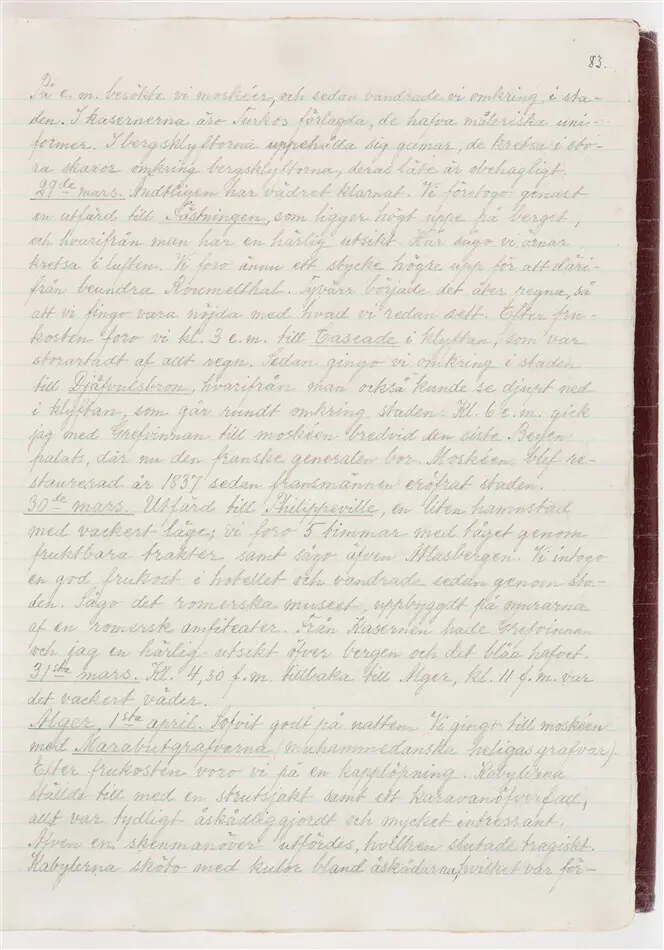 83.
På e.m. besökte vi moskéer, och sedan vandrade vi omkring i sta-
den. I kasernerna äro Turkos förlagda, de hafva måleriska uni-
former. I bergsklyftorna uppehålla sig gamar, de kretsa i sto-
ra skaror omkring bergsklyftorna, deras läte är obehagligt.
29de mars. Ändtligen har vädret klarnat. Vi företogo genast
en utfärd till Fästningen, som ligger högt uppe på berget,
och hvarifrån man har en härlig utsikt. Här sågo vi örnar
kretsa i luften. Vi foro ännu ett stycke högre upp för att däri-
från beundra Roumelthal. Tyvärr började det åter regna, så
att vi fingo vara nöjda med hvad vi redan sett. Efter fru-
kosten foro vi kl. 3 e.m. till Cascade i klyftan, som var
storartadt af allt regn. Sedan gingo vi omkring i staden
till Djäfvulsbron, hvarifrån man också kunde se djupt ned
i klyftan, som går rundt omkring staden. Kl. 6 e.m. gick
jag med Grefvinnan till moskéen bredvid den siste Beyen
palats, där nu den franske generalen bor. Moskéen blef re-
staurerad år 1837 sedan fransmännen eröfrat staden.
30de mars. Utfärd till Philippeville, en liten hamnstad
med vackert läge; vi foro 5 timmar med tåget genom
fruktbara trakter samt sågo äfven Atlasbergen. Vi intogo
en god frukost i hotellet och vandrade sedan genom sta-
den. Sågo det romerska museet, uppbyggdt på murarna
af en romersk amfiteater. Från Kasernen hade Grefvinnan
och jag en härlig utsikt öfver bergen och det blåa hafvet.
31sta mars. Kl. 4,30 f.m. tillbaka till Alger, kl. 11 f.m. var
det vackert väder.
Alger, 1sta april. Sofvit godt på natten. Vi gingo till moskéen
med Marabutgrafvarna (muhammedanska heligas grafvar)
Efter frukosten voro vi på en kapplöpning. Kabylerna
ställde till med en strutsjakt samt ett karavanöfverfall,
allt var tydligt åskådliggjordt och mycket intressant.
Äfven en skenmanöver utfördes, hvilken slutade tragiskt.
Kabylerna sköto med kulor bland åskådarna, hvilket var för-